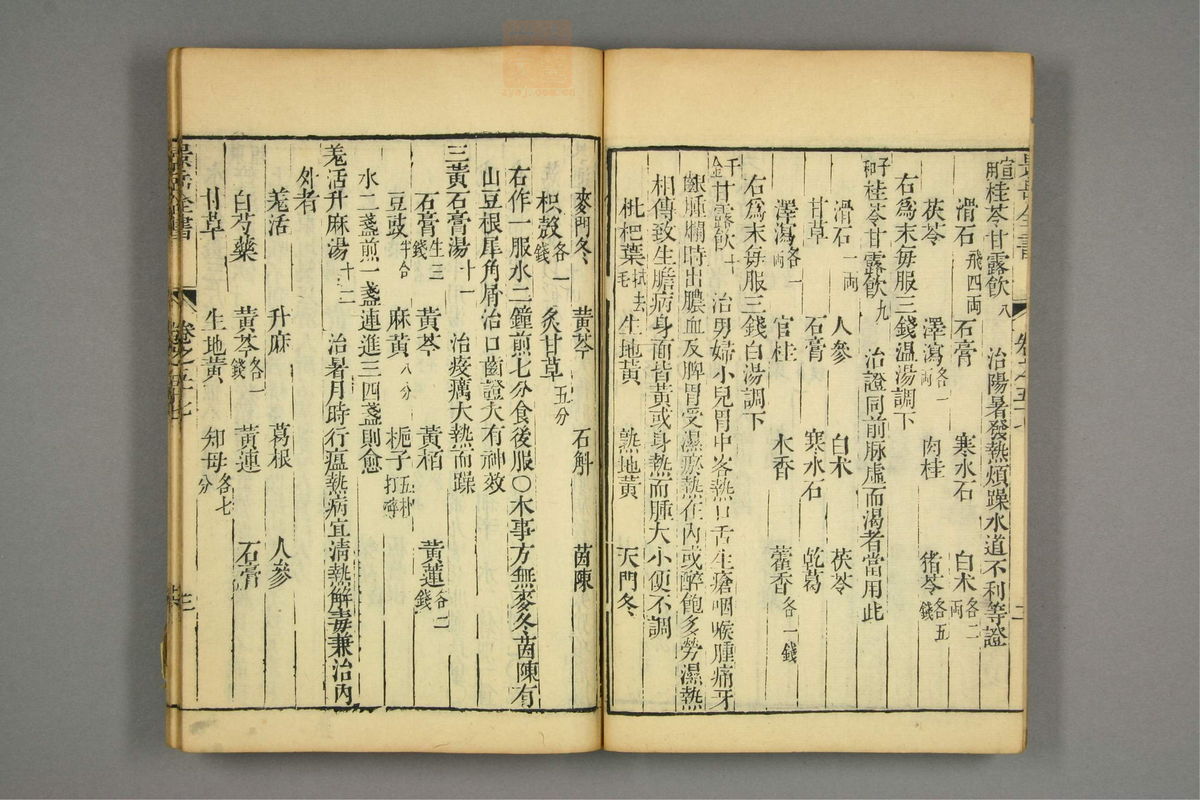 宣明桂苓甘露飲八　治陽暑發熱煩躁水道不利等證
滑石飛四両　石膏　寒水石　白术各二両
茯苓　澤瀉各一両　肉桂　豬苓各五錢
右為末每服三錢温湯調下
子和桂苓甘露飲九　治證同前脉虛而渴者當用此
滑石一両　人參　白术　茯苓
甘草　石膏　寒水石　乾葛
澤瀉各一両　官桂　木香　藿香各一錢
右為末每服三錢白湯調下
千金甘露飲十　治男婦小兒胃中客熱口舌生瘡咽喉腫痛牙
齦腫爛時出膿血及脾胃受濕瘀熱在內或醉飽多勞濕熱
相傳致生膽病身面皆黃或身熱而腫大小便不調
枇杷葉拭去毛　生地黃　熟地黃　天門冬
麥門冬　黃芩　石斛　茵陳
枳殼各一錢　炙甘草五分
右作一服水二鐘煎七分食後服○本事方無麥冬茵陳有
山豆根犀角屑治口齒證大有神效
三黃石膏湯十一　治疫癘大熱而躁
石膏生三錢　黃芩　黃栢　黃蓮各二錢
豆豉半合　麻黃八分　梔子五枚打碎
水二盞煎一盞連進三四盞則愈
羗活升麻湯十二　治暑月時行瘟熱病宜清熱解毒兼治內
外者
羗活　升麻　葛根　人參
白芍藥　黃芩各一錢　黃連　石膏
甘草　生地黃　知母各七分
景岳全書　卷之五十七